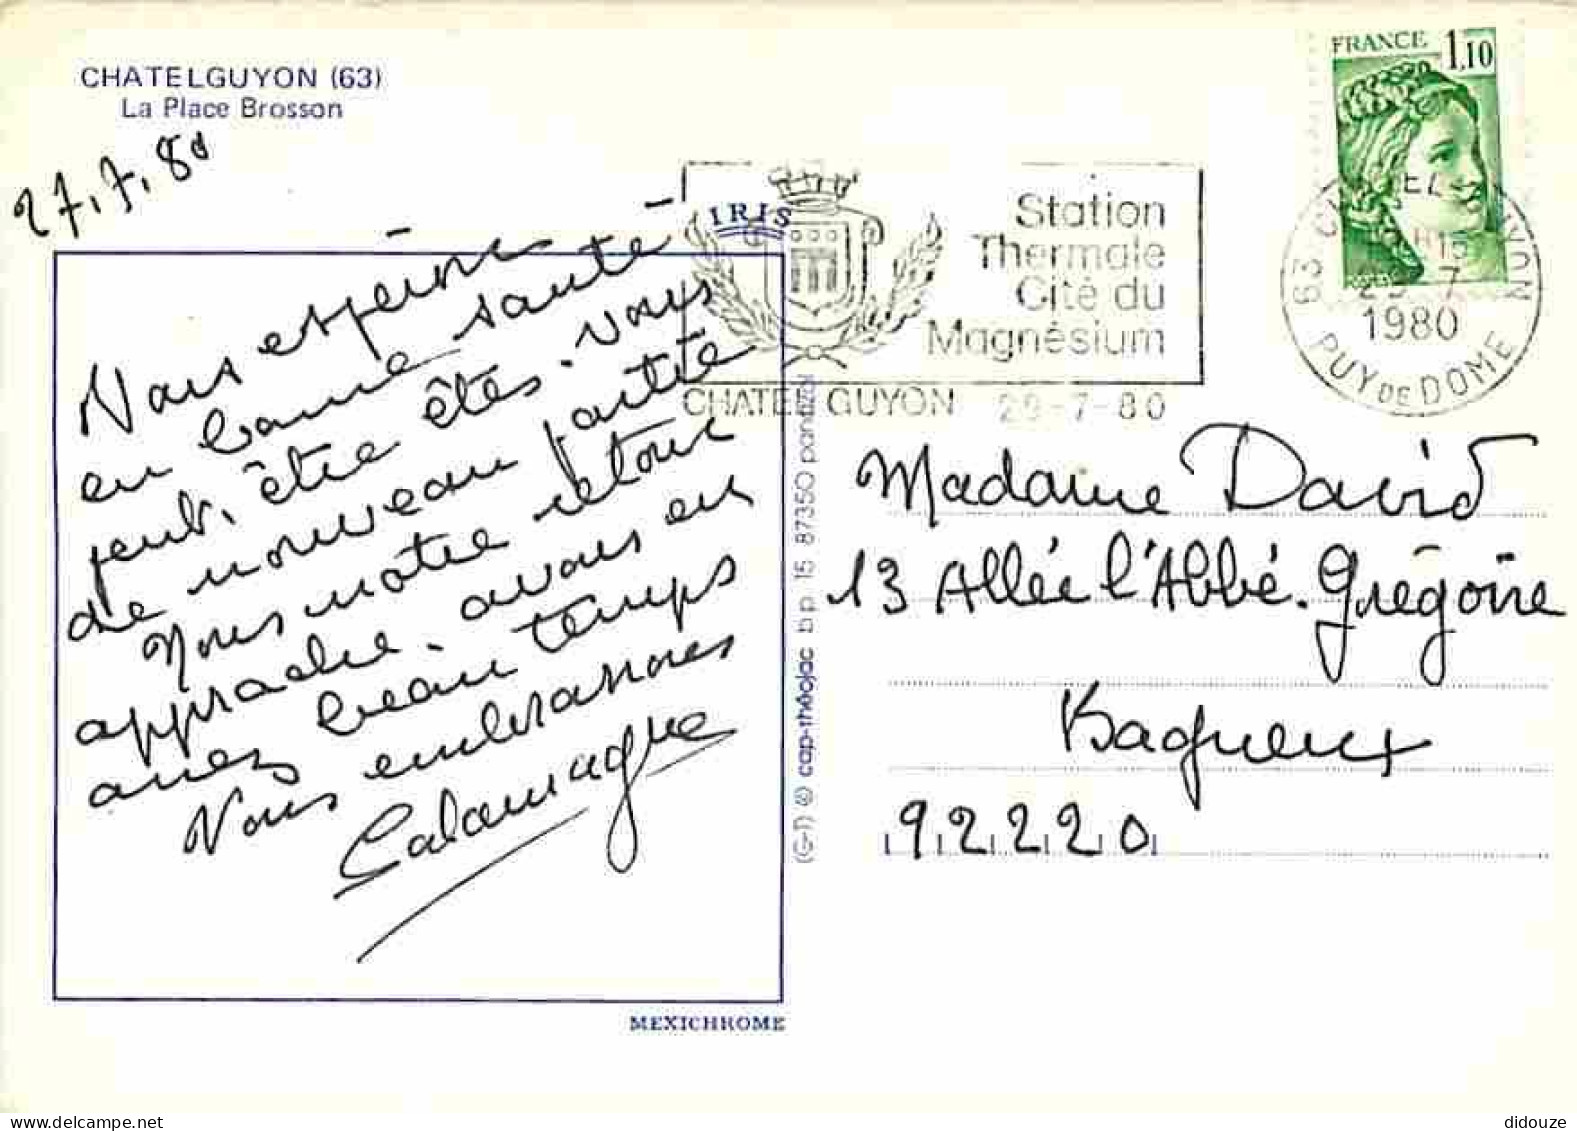 CHATELGUYON (63)
La Place Brosson
27.7.80
FRANCE 1,10
IRIS
Station
Thermale
Cité du
Magnésium
CHATEL GUYON 29-7-80
1980
63 PUY DE DOME
Nous espérons
en bonne santé -
peut. être êtes. vous
de nouveau partie
Nous notre retour
approche. avons eu
assez beau temps
Vous embrassons
Calamagne
(G-T) © cap-théojac bp 15 87350 panazol
Madame David
13 Allée l'Abbé. Grégoire
Bagneux
92220
MEXICHROME
didouze